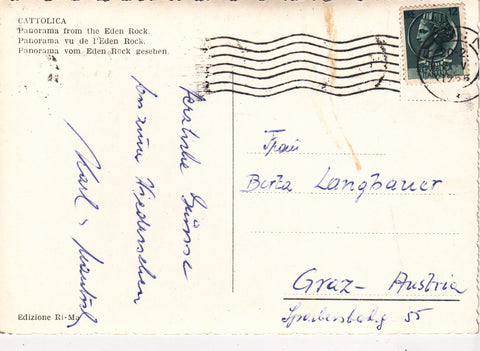 CATTOLICA
Panorama from the Eden Rock.
Panorama vu de l'Eden Rock.
Panorama vom Eden Rock gesehen.
Herzliche Grüsse
Wiedersehen
Karl
Edizione Ri-Ma
12
Frau
Berta Langbauer
Graz - Austria
55